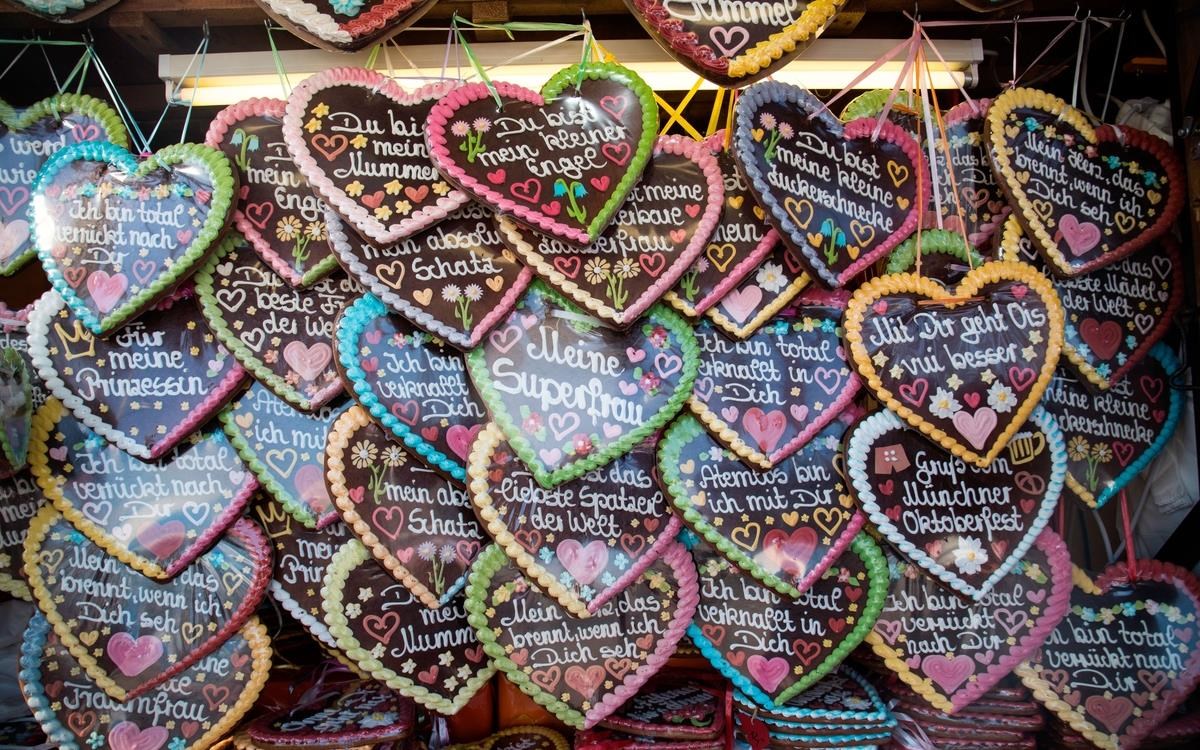 Himmel
Ich bin total
verrückt nach
Dir
Du
mein
Nummer
Du bist
mein kleiner
Engel
Du bist
meine kleine
Zuckerschnecke
Mein Herz, das
brennt, wenn ich
Dich seh
mein
meine
mein absolu
Schatz
Für
meine
Prinzessin
beste
der We
Ich bin
verknallt in
Dich
Meine
Superfrau
Ich bin total
verknallt in
Dich
Mit Dir geht Ois
vui besser
das
Mädel
der Welt
kleine
Ich bin total
verrückt nach
Dir
Atemlos
ich mit
mein abs
Schatz
das
liebste Spatzerl
der Welt
Atemlos bin
ich mit Dir
Gruß vom
Münchner
Oktoberfest
Mein Herz, das
brennt, wenn ich
Dich seh
mei
Prin
mein
Numm
Mein Herz, das
brennt, wenn ich
Dich seh
Ich bin total
verknallt in
Dich
Ich bin total
verrückt
nach Dir
Ich bin total
verrückt nach
Dir
Traumfrau